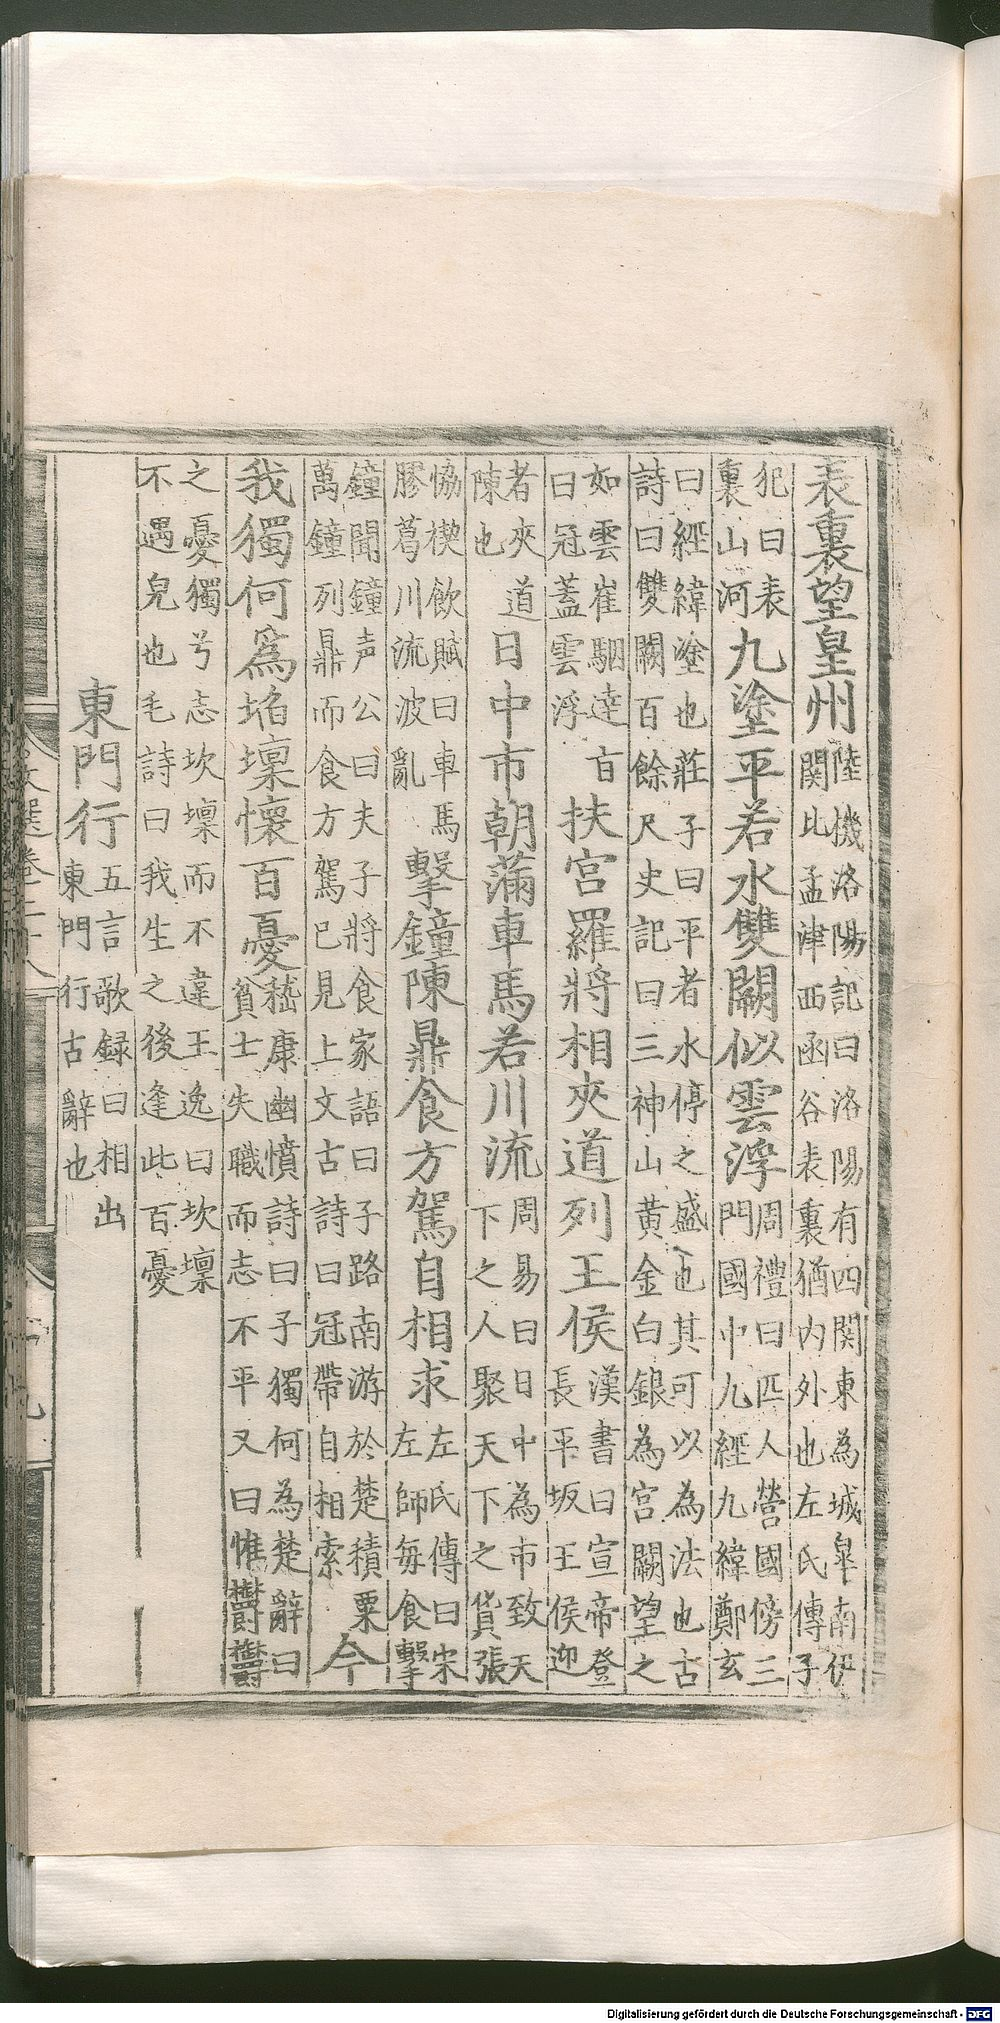 表裏望皇州陸機洛陽記曰洛陽有四関東為城皐南伊
関比孟津西函谷表裏猶内外也左氏傳子
犯曰表
裏山河九塗平若水雙闕似雲浮周禮曰匹人營國傍三
門國中九經九緯鄭玄
曰經緯塗也莊子曰平者水停之盛也其可以為法也古
詩曰雙闕百餘尺史記曰三神山黃金白銀為宮闕望之
如雲崔駰達㫖
曰冠蓋雲浮扶宮羅將相夾道列王侯漢書曰宣帝登
長平坂王侯迎
者夾道
陳也日中市朝蒲車馬若川流周易曰日中為市致天
下之人聚天下之貨張
恊禊飲賦曰車馬
膠葛川流波亂擊鐘陳鼎食方駕自相求左氏傳曰宋
左師每食擊
鐘聞鐘声公曰夫子將食家語曰子路南游於楚積粟
萬鐘列鼎而食方駕已見上文古詩曰冠帶自相索今
我獨何爲埳壈懷百憂嵇康幽憤詩曰子獨何為楚辭曰
貧士失職而志不平又曰惟鬱鬱
之憂獨兮志坎壈而不違王逸曰坎壈
不遇皃也毛詩曰我生之後逢此百憂
東門行五言歌録曰相出
東門行古辭也
文選卷二十八
Digitalisierung gefördert durch die Deutsche Forschungsgemeinschaft - DFG